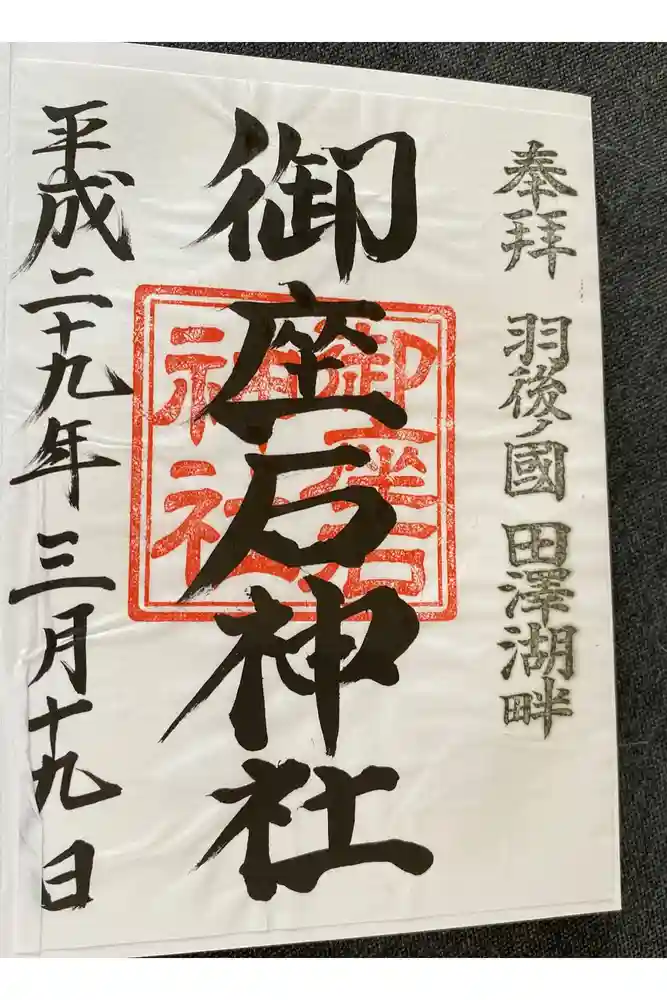 奉拝 羽後ノ國 田澤湖畔
御座石神社
御座石
神社
平成二十九年三月十九日